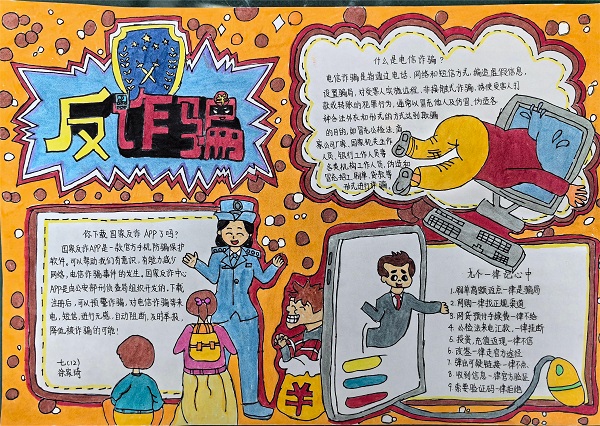 反诈骗
什么是电信诈骗？
电信诈骗是指通过电话、网络和短信方式，编造虚假信息，
设置骗局，对受害人实施远程、非接触式诈骗，诱使受害人打
款或转账的犯罪行为，通常以冒充他人及仿冒、伪造各
种合法外衣和形式的方式达到欺骗
的目的，如冒充公检法、商
家公司厂家、国家机关工作
人员、银行工作人员等
各类机构工作人员，伪造和
冒充招工、刷单、贷款等
形式进行诈骗。
你下载国家反诈APP了吗？
国家反诈APP是一款官方手机防骗保护
软件。可以帮助我们有意识、有能力减少
网络，电信诈骗事件的发生。国家反诈中心
APP是由公安部刑侦查局组织开发的。下载
注册后，可以预警诈骗，对电信诈骗等来
电，短信，进行先感，自动阻断，及时举报，
降低被诈骗的可能！
七(12)
九个一律记心中
1.刷单高额返点一律是骗局
2.网购一律找正规渠道
3.网贷预付手续费一律不给
4.公检法来电汇款，一律挂断
5.投资，充值返现一律不信
6.改签一律走官方途径
7.弹出可疑链接一律不点
8.收到信息一律官方验证
9.索要验证码一律拒绝
¥